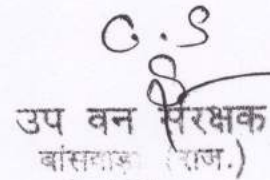 C.S
उप वन संरक्षक
बांसवाड़ा (राज.)